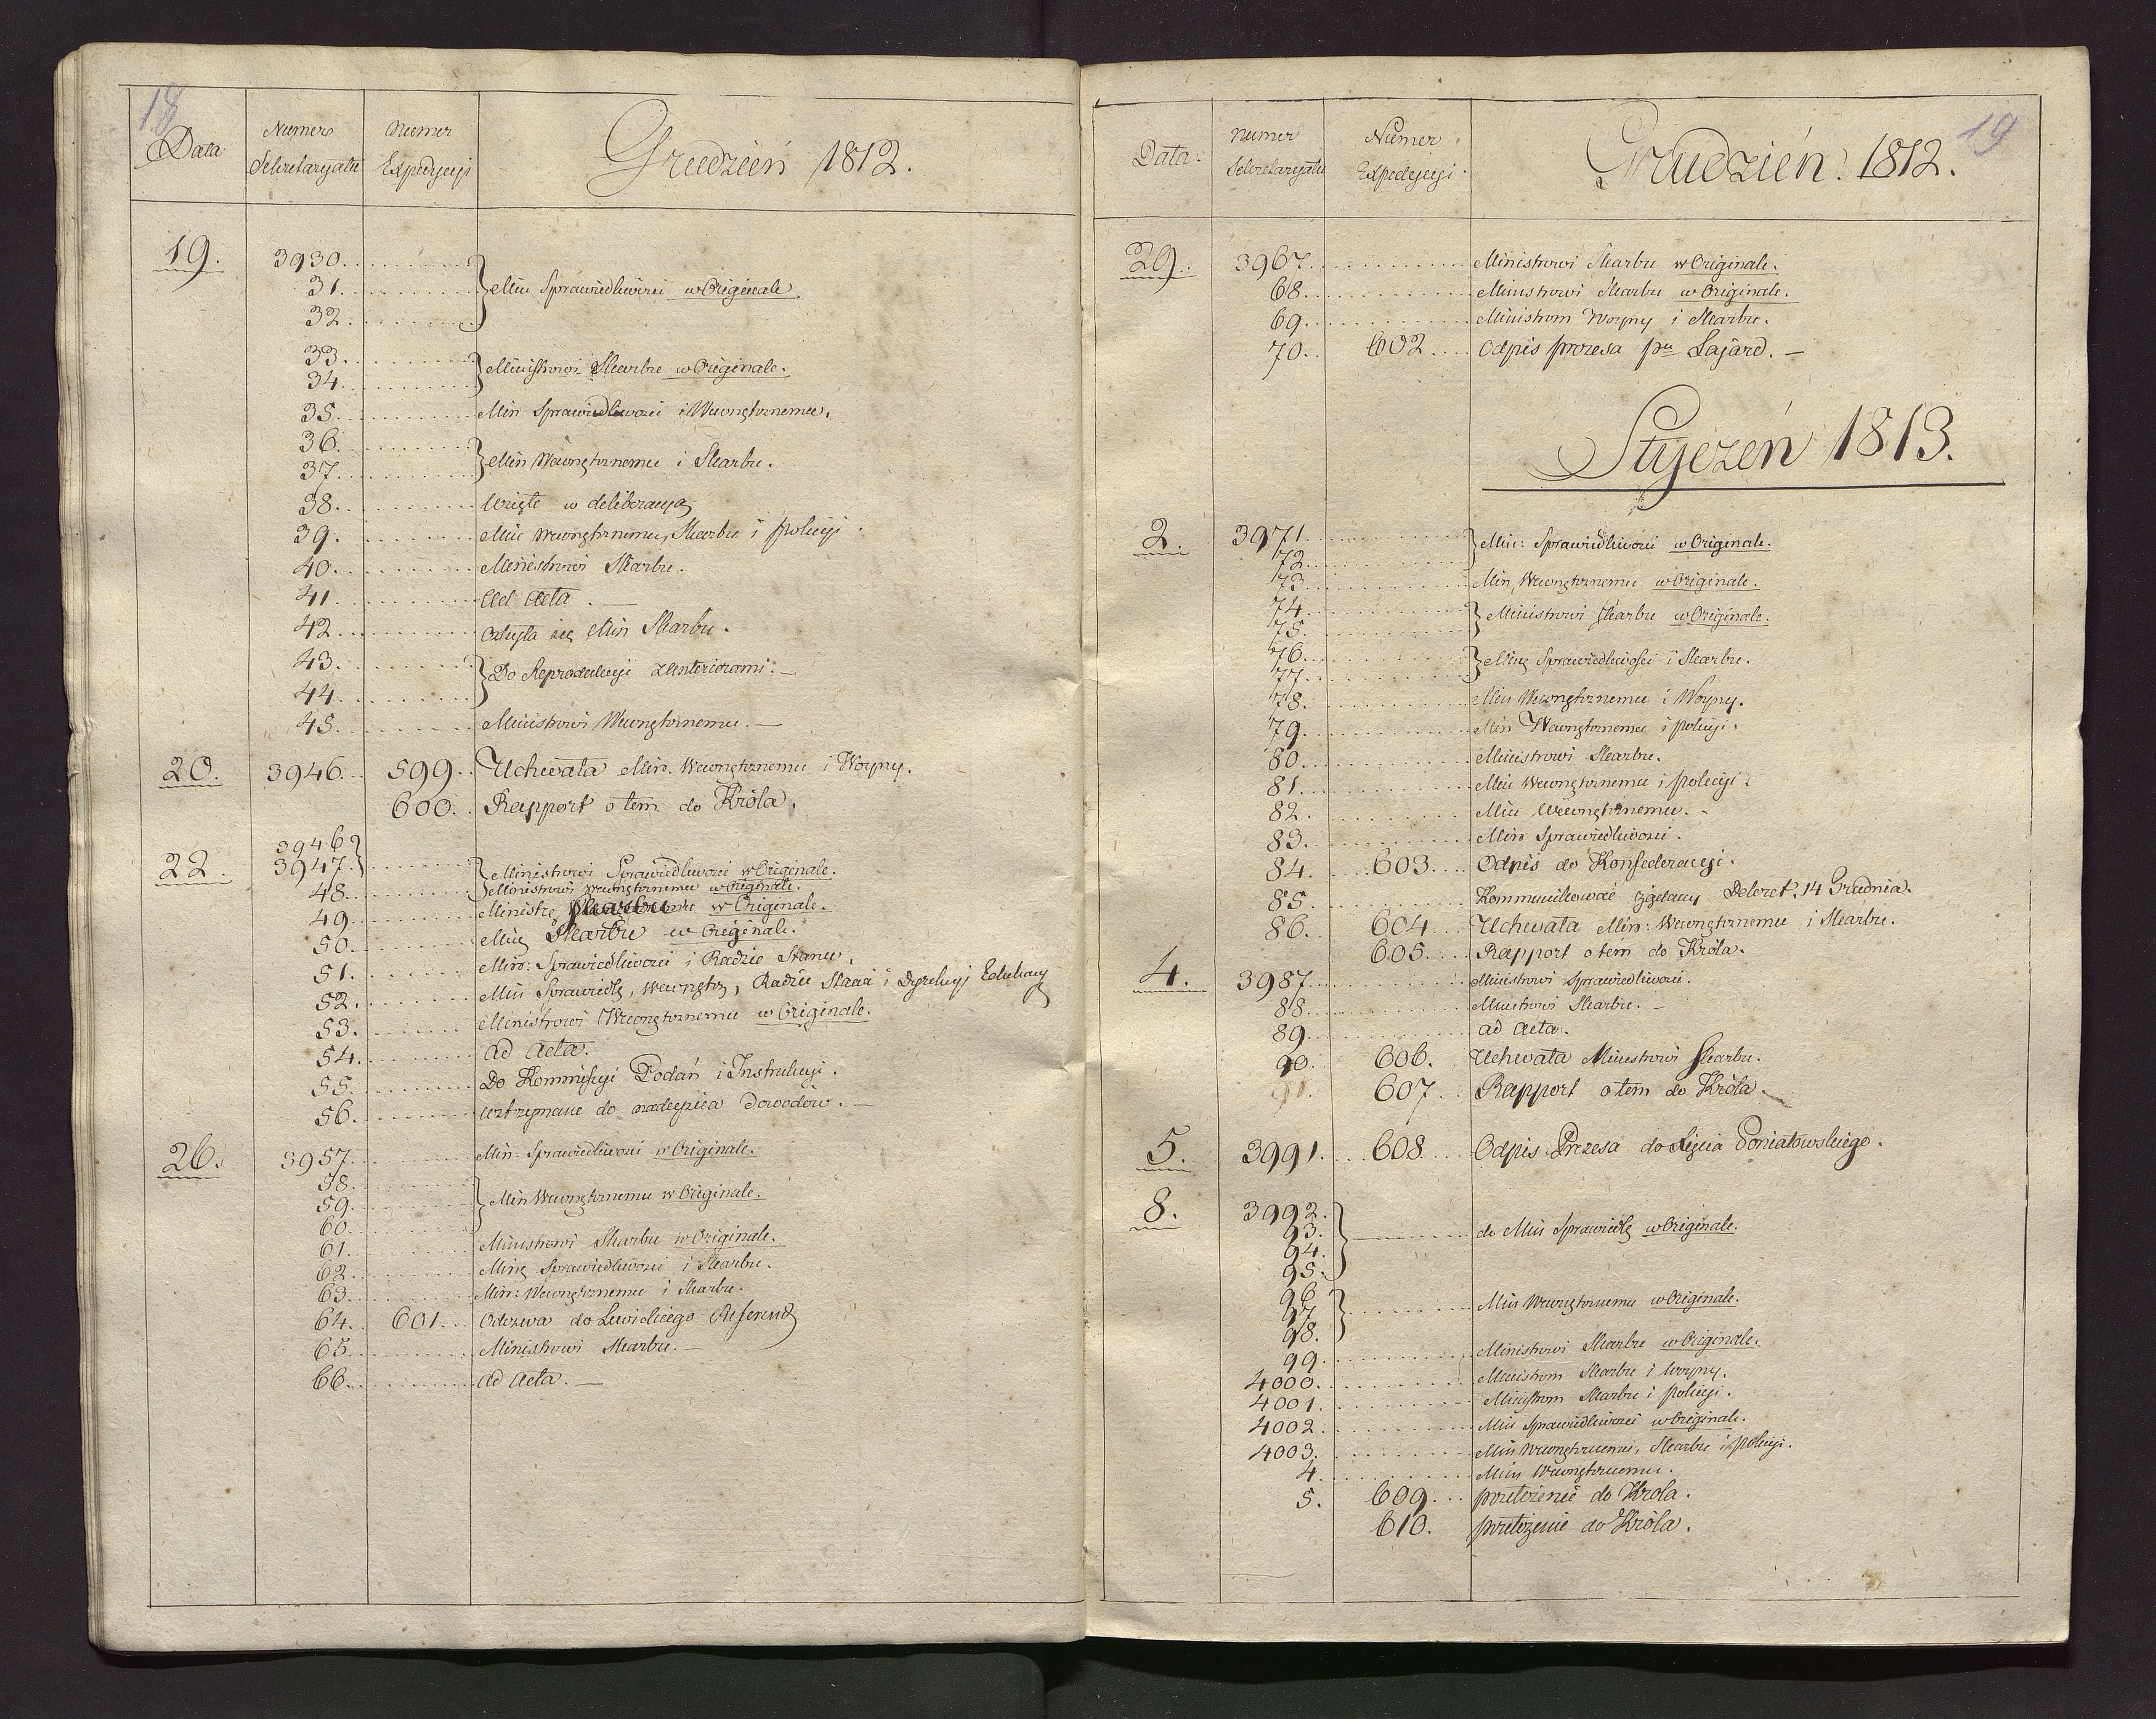 18
Data Numero Sekretaryatu Numer Expedycyji Grudzień 1812.
19. 3930.
31. Min Sprawiedliwości w Originale
32.
33.
34. Ministrowi Skarbu w Originale.
35. Min Sprawiedliwości i Wewnętrznemu.
36.
37. Min Wewnętrznemu i Skarbu.
38. Wzięte w deliberacyą
39. Min Wewnętrznemu, Skarbu i Policyi.
40. Ministrowi Skarbu.
41. Ad Acta. —
42. się Min Skarbu.
43.
44. Do Reprodukcyi z Anteriorami. —
45. Ministrowi Wewnętrznemu. —
20. 3946. 599. Uchwała Min. Wewnętrznemu i Woyny.
600. Rapport o tem do Króla.
3946
22. 3947. Ministrowi Sprawiedliwości w Originale.
48. Ministrowi Wewnętrznemu w Originale.
49. Ministrę w Originale.
50. Minę Skarbu w Originale.
51. Min: Sprawiedliwości i Radzie Stanu.
52. Min Sprawiedlę, Wewnętrz, Radzie Stanu i Dyrekcyi Edukacyi
53. Ministrowi Wewnętrznemu w Originale.
54. Ad Acta.
55. Do Kommissyi Podań i Instrukcyi.
56. Wstrzymane do nadeyścia dowodów. —
26. 3957. Min. Sprawiedliwości w Originale.
58.
59. Min Wewnętrznemu w Originale.
60.
61. Ministrowi Skarbu w Originale.
62. Minę Sprawiedliwości i Skarbu.
63. Min: Wewnętrznemu i Skarbu.
64. 601. Odezwa do Lewickiego Referend
65. Ministrowi Skarbu. —
66. Ad Acta. —
19
Data. Numer Sekretaryatu Numer Expedycyi. Grudzień. 1812.
29. 3967. Ministrowi Skarbu w Originale.
68. Ministrowi Skarbu w Originale.
69. Ministrom Woyny i Skarbu.
70. 602. Odpis prezesa pnu Lajard. —
Styczeń 1813.
2. 3971. Min: Sprawiedliwości w Originale.
72.
73. Min, Wewnętrznemu w Originale.
74. Ministrowi Skarbu w Originale.
75.
76. Minę Sprawiedliwości i Skarbu.
77.
78. Min Wewnętrznemu i Woyny.
79. Min Wewnętrznemu i Policyi.
80. Ministrowi Skarbu.
81. Min Wewnętrznemu i Policyi.
82. Min Wewnętrznemu.
83. Min Sprawiedliwości.
84. 603. Odpis do Konfederacyi.
85. Kommunikować żądany Dekret. 14 Grudnia.
86. 604. Uchwała Min: Wewnętrznemu i Skarbu.
605. Rapport o tem do Króla.
4. 3987. Ministrowi Sprawiedliwości.
88. Ministrowi Skarbu. —
89. ad Acta.
90. 606. Uchwała Ministrowi Skarbu.
91. 607. Rapport o tem do Króla.
5. 3991. 608. Odpis Prezesa do Xięcia Poniatowskiego.
8. 3992.
93. do Min Sprawiedlę w Originale.
94.
95.
96.
97. Min Wewnętrznemu w Originale.
98.
99. Ministrowi Skarbu w Originale.
4000. Ministrom Skarbu i Woyny.
4001. Ministrom Skarbu i Policyi.
4002. Min Sprawiedliwości w Originale.
4003. Min Wewnętrznemu, Skarbu i Policyi.
4. Min Wewnętrznemu.
5. 609. przełożenie do Króla.
610. przełożenie do Króla.